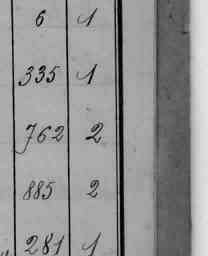 6 1
335 1
762 2
885 2
281 1